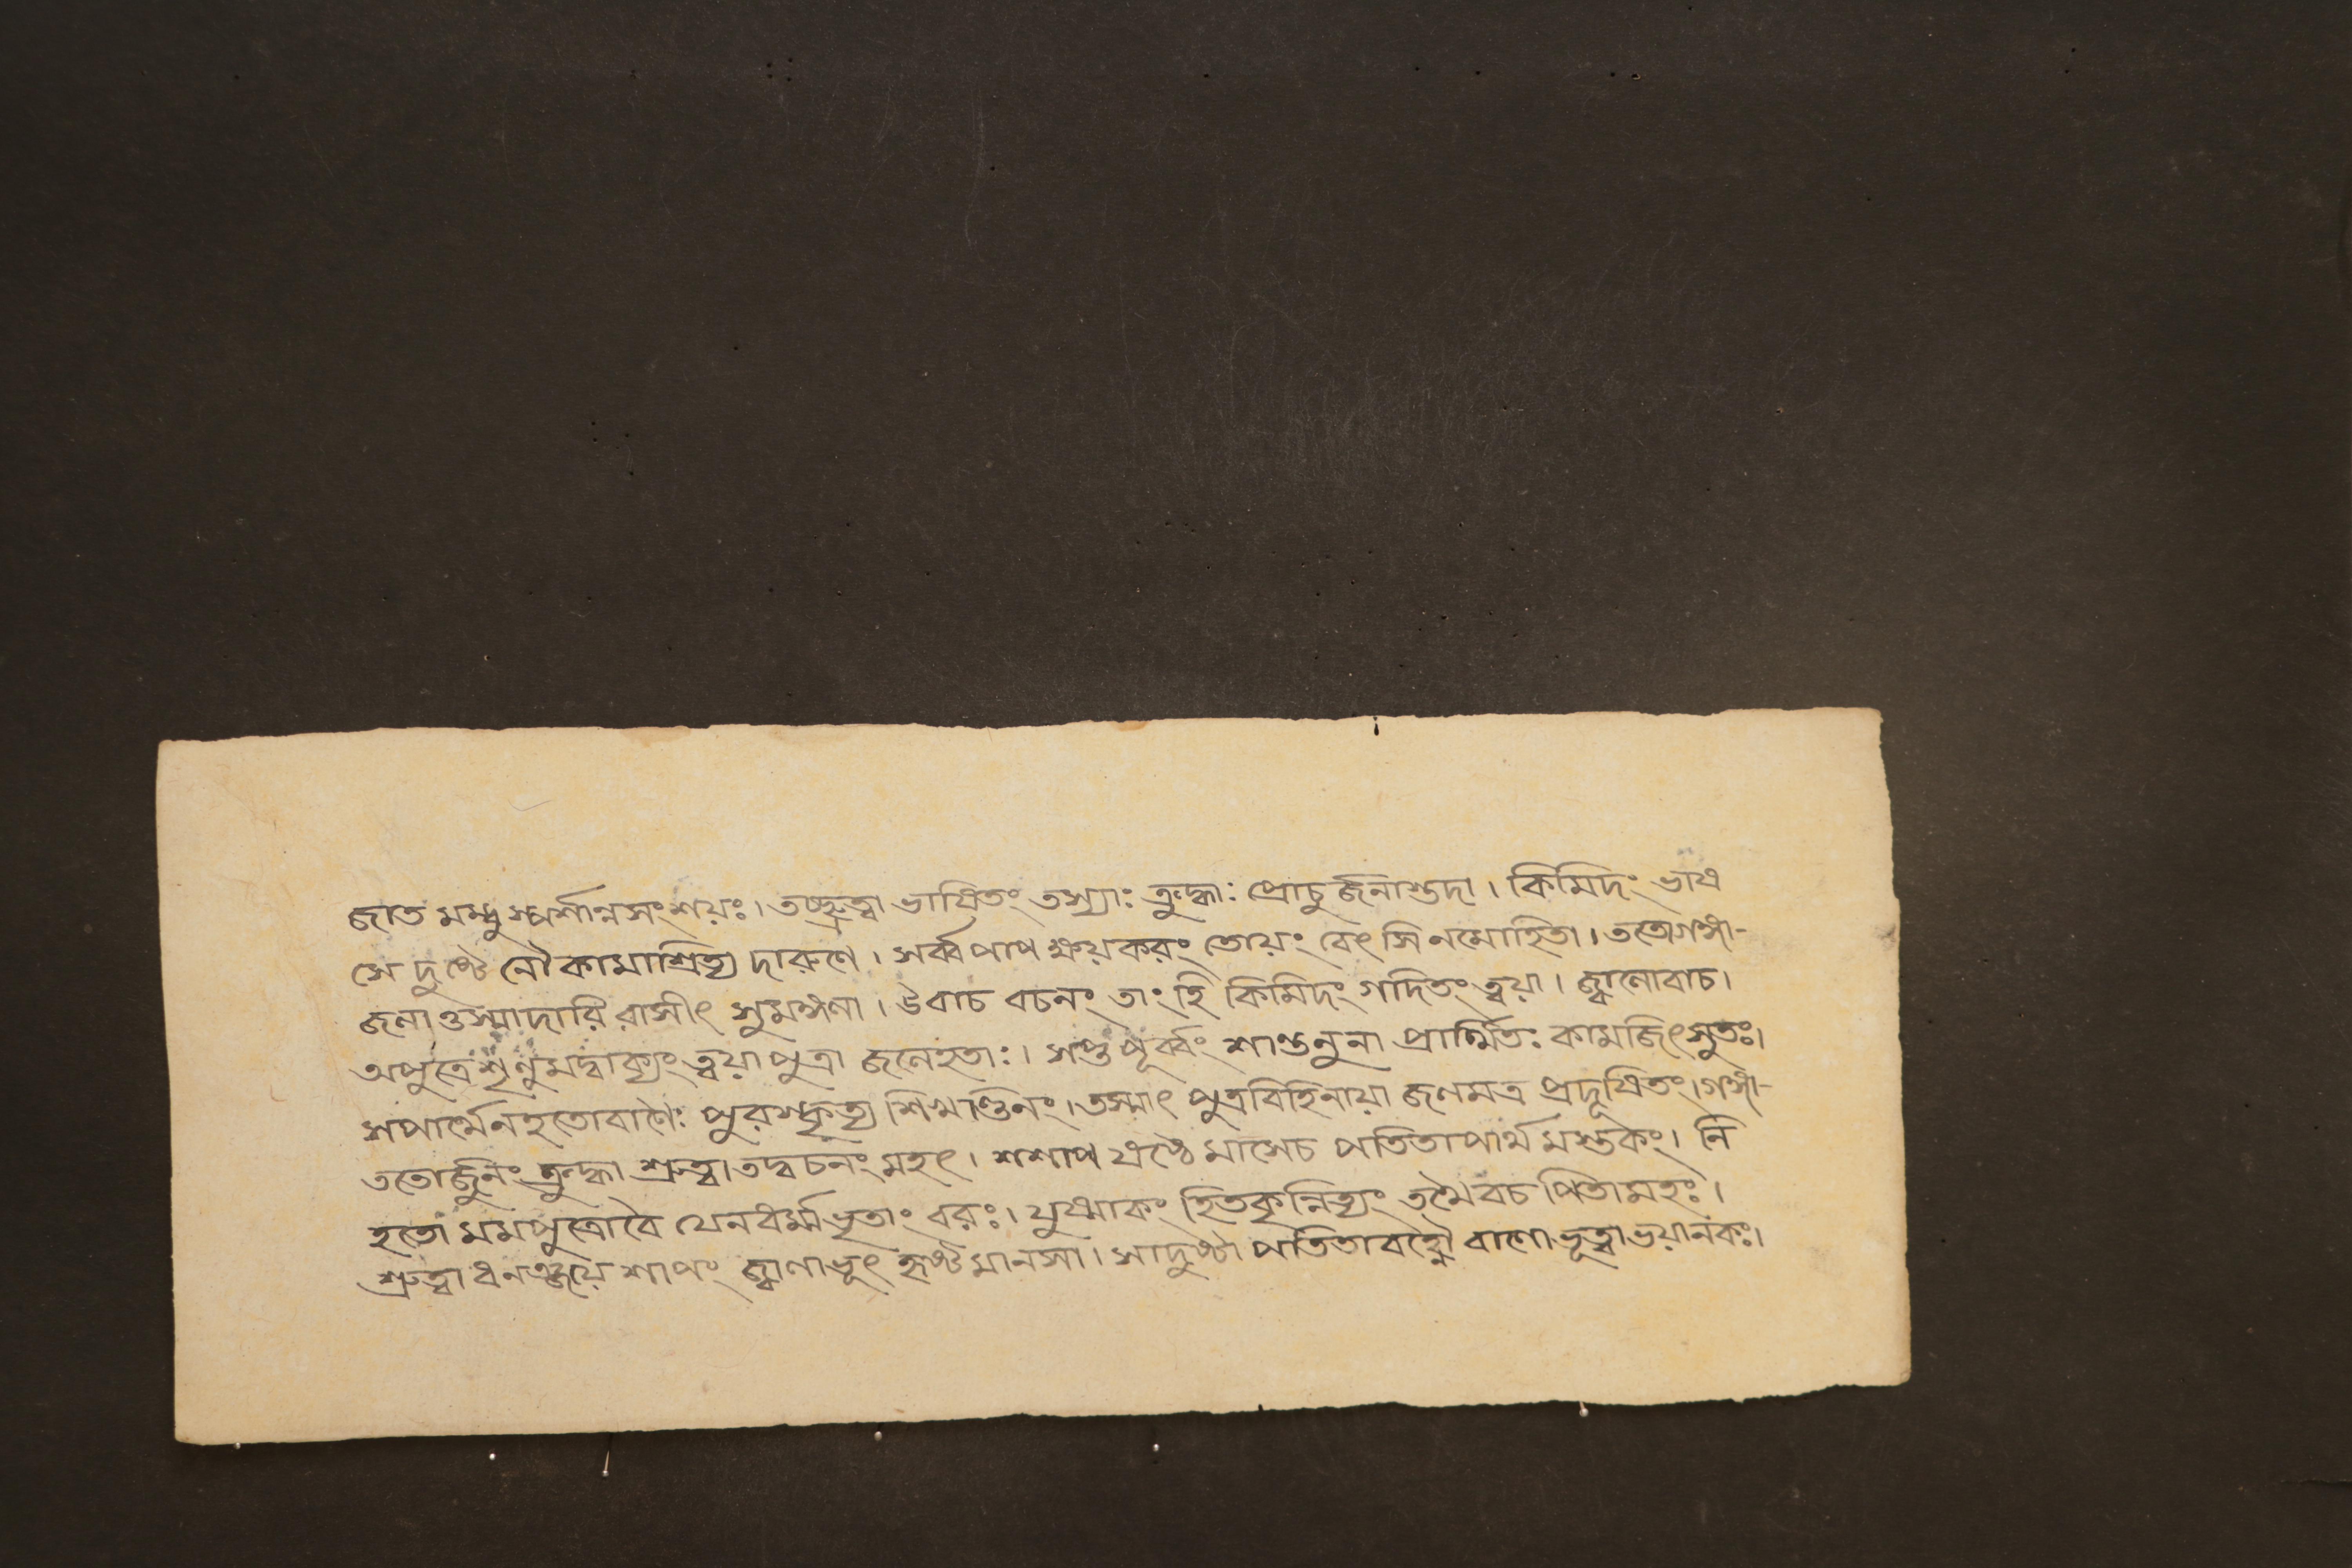 জাত মম্বু স্পর্শান্নসংশয়ঃ। তচ্ছ্রুত্বা ভাষিতং তস্যাঃ ক্রুদ্ধাঃ প্রোচুর্জনাস্তদা। কিমিদং ভাষ
সে দুষ্টে নৌকামাশ্রিত্য দারুণে। সর্ব্বপাপক্ষয়করং তোয়ং বেৎসি নমোহিতা। ততোগঙ্গা-
জলাত্তস্মাদারিরাসীৎ সুমঙ্গলা। উবাচ বচনং তাং হি কিমিদং গদিতং ত্বয়া। জ্বালোবাচ।
অপুত্রে শৃনুমদ্বাক্যং ত্বয়া পুত্রা জলেহতাঃ। সপ্তপূর্ব্বং শান্তনুনা প্রার্থিতঃ কামজিৎসুতঃ।
সপার্থেনহতোবাণৈঃ পুরস্কৃত্য শিখণ্ডিনং। তস্মাৎ পুত্রবিহিনায়া জলমত্র প্রদূষিতং। গঙ্গা-
ততোর্জুনং ক্রুদ্ধা শ্রুত্বা তদ্বচনং মহৎ। শশাপ ষষ্ঠে মাসেচ পতিতাপার্থ মস্তকং। নি
হতো মমপুত্রোবৈ যেনধর্ম্মভৃতাং বরঃ। যুষ্মাকং হিতকৃন্নিত্যং তথৈবচ পিতামহঃ।
শ্রুত্বা ধনঞ্জয়ে শাপং জ্বালাভূৎ হৃষ্টমানসা। সাদুষ্টা পতিতাবহ্নৌ বাণোভূত্বা ভয়ানকঃ।